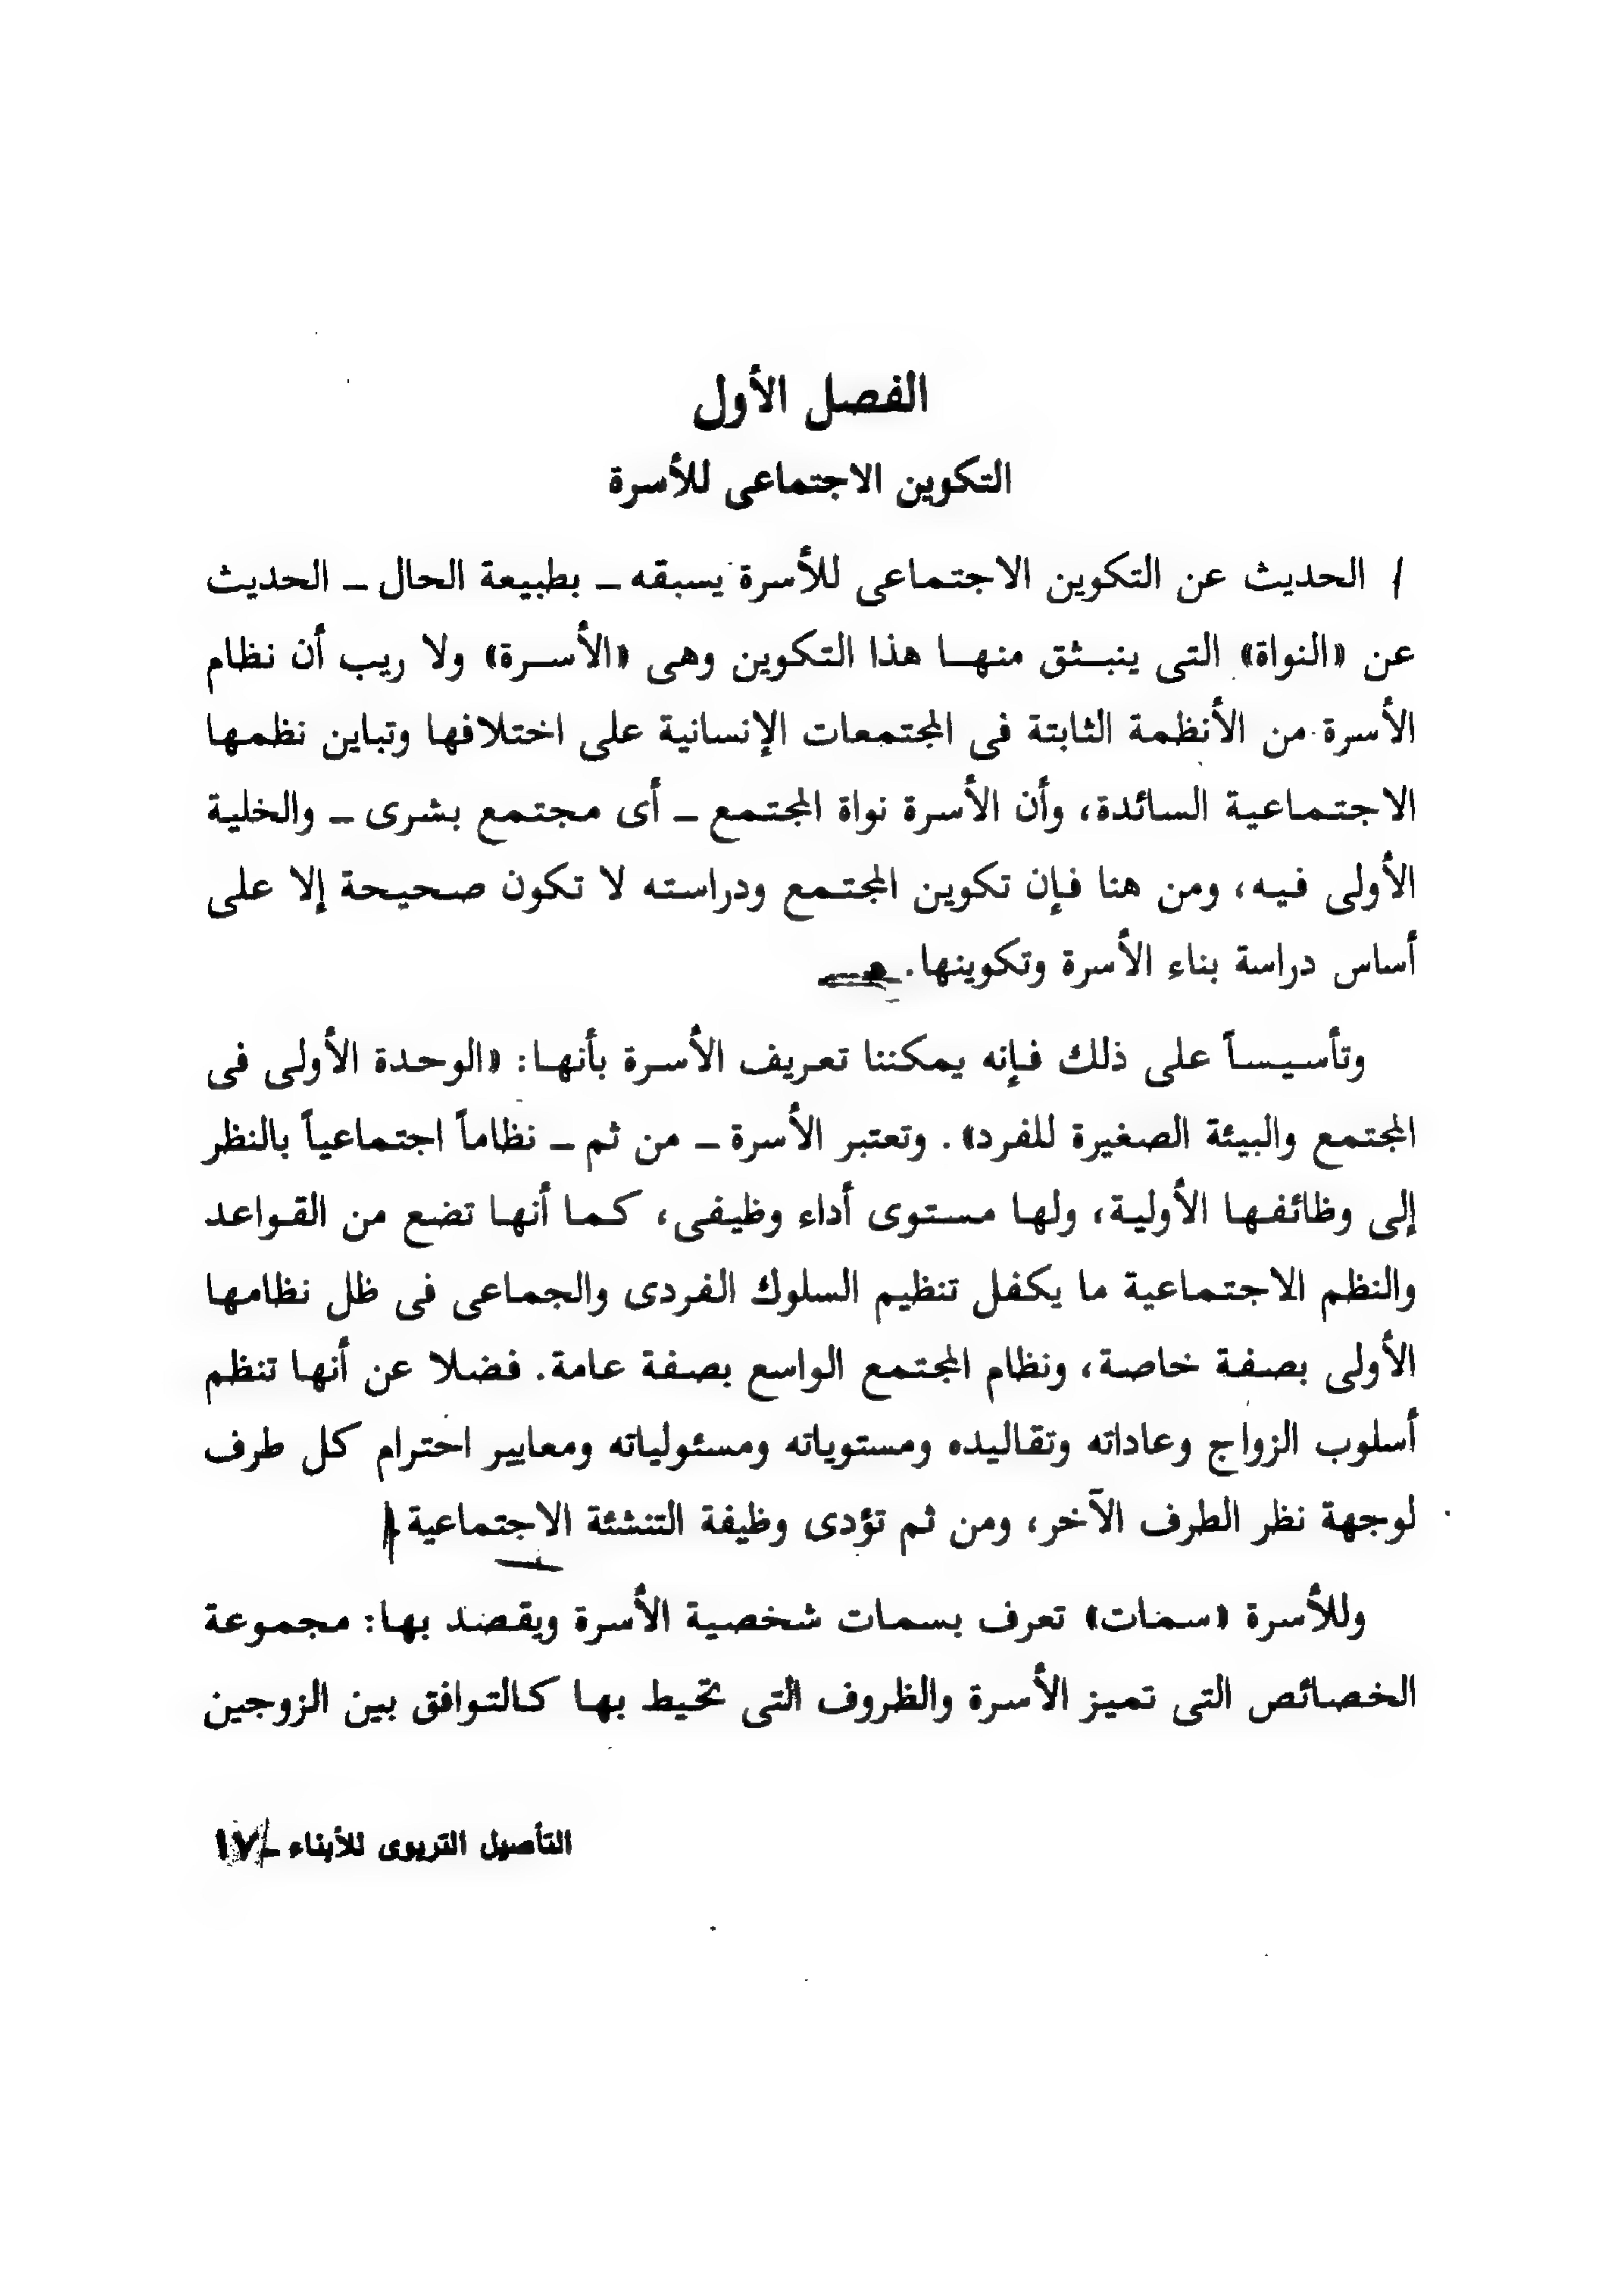 الفصل الأول
التكوين الاجتماعى للأسرة
الحديث عن التكوين الاجتماعى للأسرة يسبقه ــ بطبيعة الحال ــ الحديث
عن «النواة» التى ينبثق منها هذا التكوين وهى «الأسرة» ولا ريب أن نظام
الأسرة من الأنظمة الثابتة فى المجتمعات الإنسانية على اختلافها وتباين نظمها
الاجتماعية السائدة، وأن الأسرة نواة المجتمع ــ أى مجتمع بشرى ــ والخلية
الأولى فيه، ومن هنا فإن تكوين المجتمع ودراسته لا تكون صحيحة إلا على
أساس دراسة بناء الأسرة وتكوينها.
وتأسيساً على ذلك فإنه يمكننا تعريف الأسرة بأنها: «الوحدة الأولى فى
المجتمع والبيئة الصغيرة للفرد». وتعتبر الأسرة ــ من ثم ــ نظاماً اجتماعياً بالنظر
إلى وظائفها الأولية، ولها مستوى أداء وظيفى، كما أنها تضع من القواعد
والنظم الاجتماعية ما يكفل تنظيم السلوك الفردى والجماعى فى ظل نظامها
الأولى بصفة خاصة، ونظام المجتمع الواسع بصفة عامة. فضلا عن أنها تنظم
أسلوب الزواج وعاداته وتقاليده ومستوياته ومسئولياته ومعايير احترام كل طرف
لوجهة نظر الطرف الآخر، ومن ثم تؤدى وظيفة التنشئة الاجتماعية.
وللأسرة «سمات» تعرف بسمات شخصية الأسرة ويقصد بها: مجموعة
الخصائص التى تميز الأسرة والظروف التى تحيط بها كالتوافق بين الزوجين
التأصيل التربوى للأبناء ــ ١٧